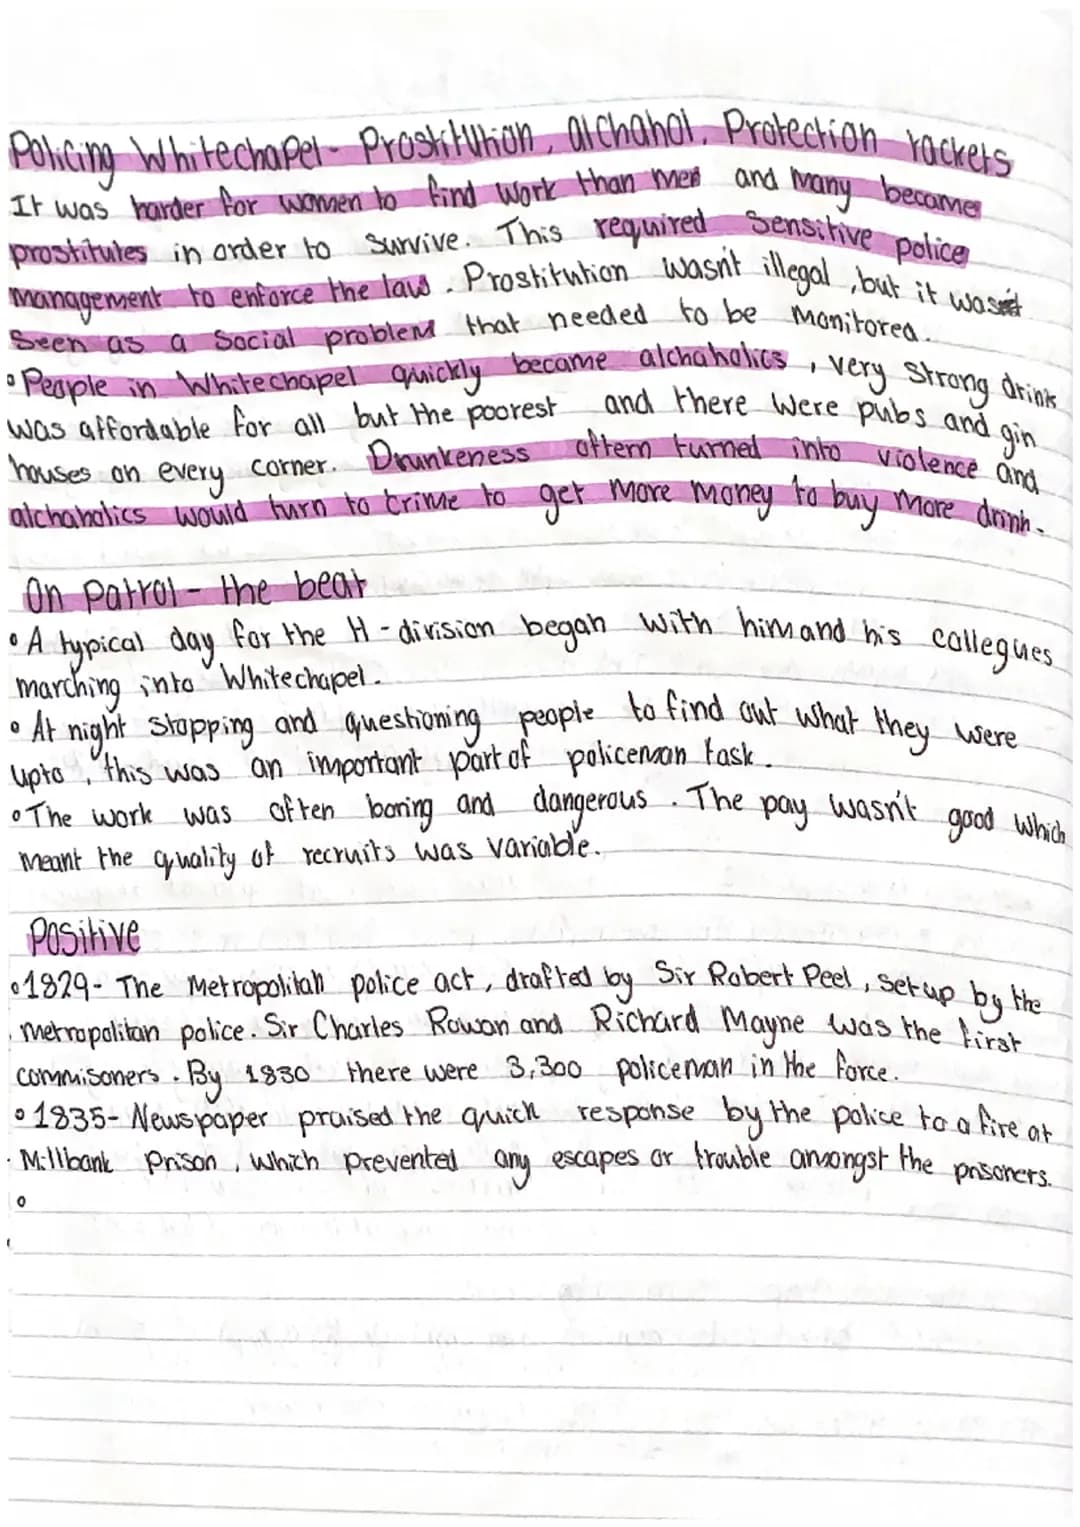 Policing Whitechapel - Prostitution, alchahol, Protection rackets
It was harder for women to find work than men and many became
prostitutes in order to survive. This required sensitive police
management to enforce the law. Prostitution wasn't illegal, but it was
seen as a social problem that needed to be monitored.
• People in Whitechapel quickly became alchaholics, very strong drink
was affordable for all but the poorest and there were pubs and gin
houses on every corner. Drunkeness oftern turned into violence and
alchaholics would turn to crime to get more money to buy more drink.
On patrol - the beat
• A typical day for the H-division began with him and his collegues
marching into Whitechapel.
• At night stopping and questioning people to find out what they were
upto, this was an important part of policeman task.
• The work was often boring and dangerous. The pay wasn't good which
meant the quality of recruits was variable.
Positive
• 1829- The Metropolitan police act, drafted by Sir Robert Peel, set up by the
metropolitan police. Sir Charles Rowan and Richard Mayne was the first
commisoners. By 1830 there were 3,300 policeman in the force.
• 1835- Newspaper praised the quick response by the police to a fire at
Millbank Prison, which prevented any escapes or trouble amongst the prisoners.
•